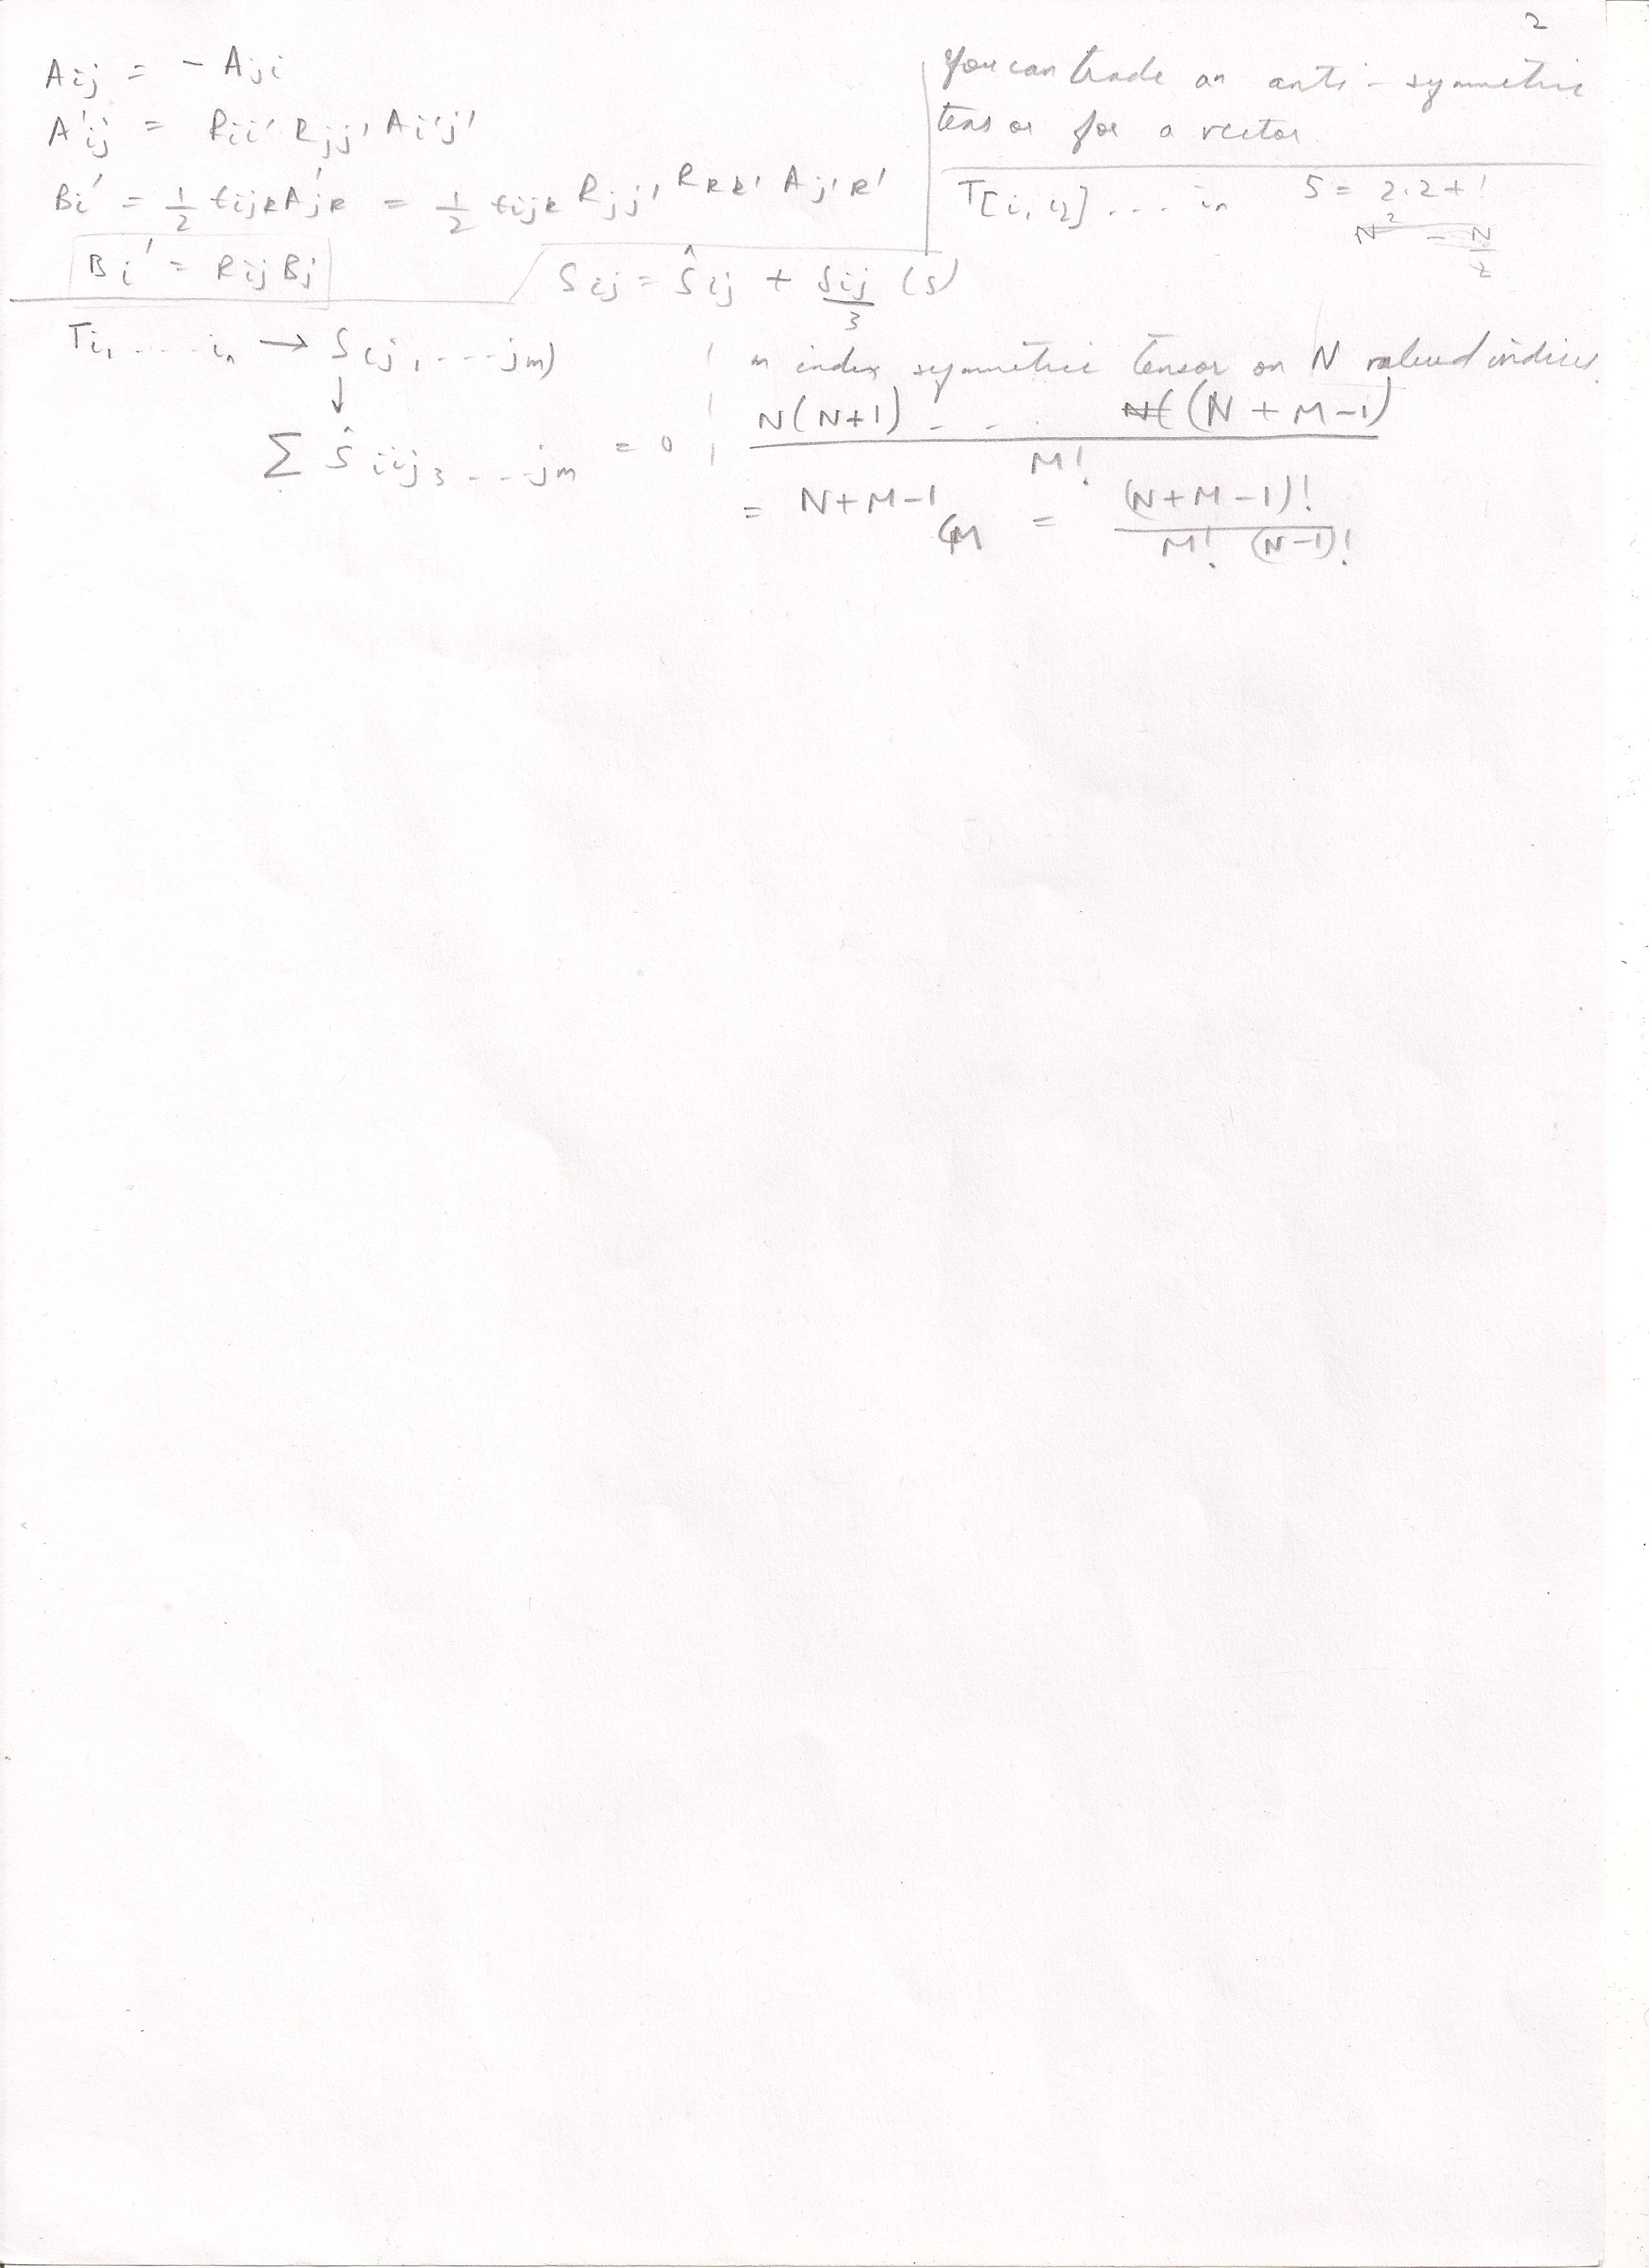 2
A_{ij} = - A_{ji}
A'_{ij} = R_{ii'} R_{jj'} A_{i'j'}
B_i' = 1/2 ε_{ijk} A'_{jk} = 1/2 ε_{ijk} R_{jj'} R_{kk'} A_{j'k'}
B_i' = R_{ij} B_j
You can trade an anti-symmetric
tensor for a vector.
T_{[i_1 i_2] .... i_n} 5 = 2.2+1
N^2 - N/2
S_{ij} = Ŝ_{ij} + δ_{ij}/3 (S)
T_{i_1 .... i_n} → S_{(j_1 ... j_m)}
↓
Σ Ŝ_{iij_3 ... j_m} = 0
m index symmetric tensor on N valued indices.
N(N+1) - - . N( (N+M-1) / M!
= ^{N+M-1}C_M = (N+M-1)! / M! (N-1)!